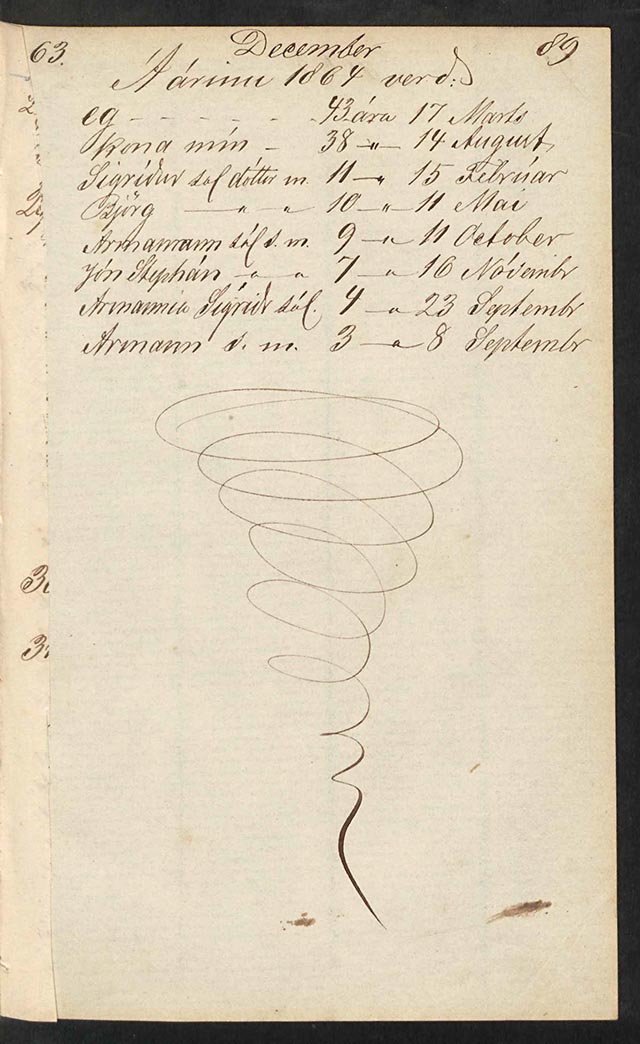 63. December 89
Á árinu 1864 verd:
eg - - - - - - 43 ára 17 Marts
kona mín - 38 —"— 14 August
Sigríður sál dóttir m. 11 —" 15 Febrúar
Björg — " " 10 —"— 11 Mai
Armamann sál s. m. 9 —" 11 October
Jón Stephán —" " 7 —" 16 Nóvembr
Armannia Sigríðr sál. 4 —" 23 Septembr
Armann s. m. 3 —" 8 Septembr